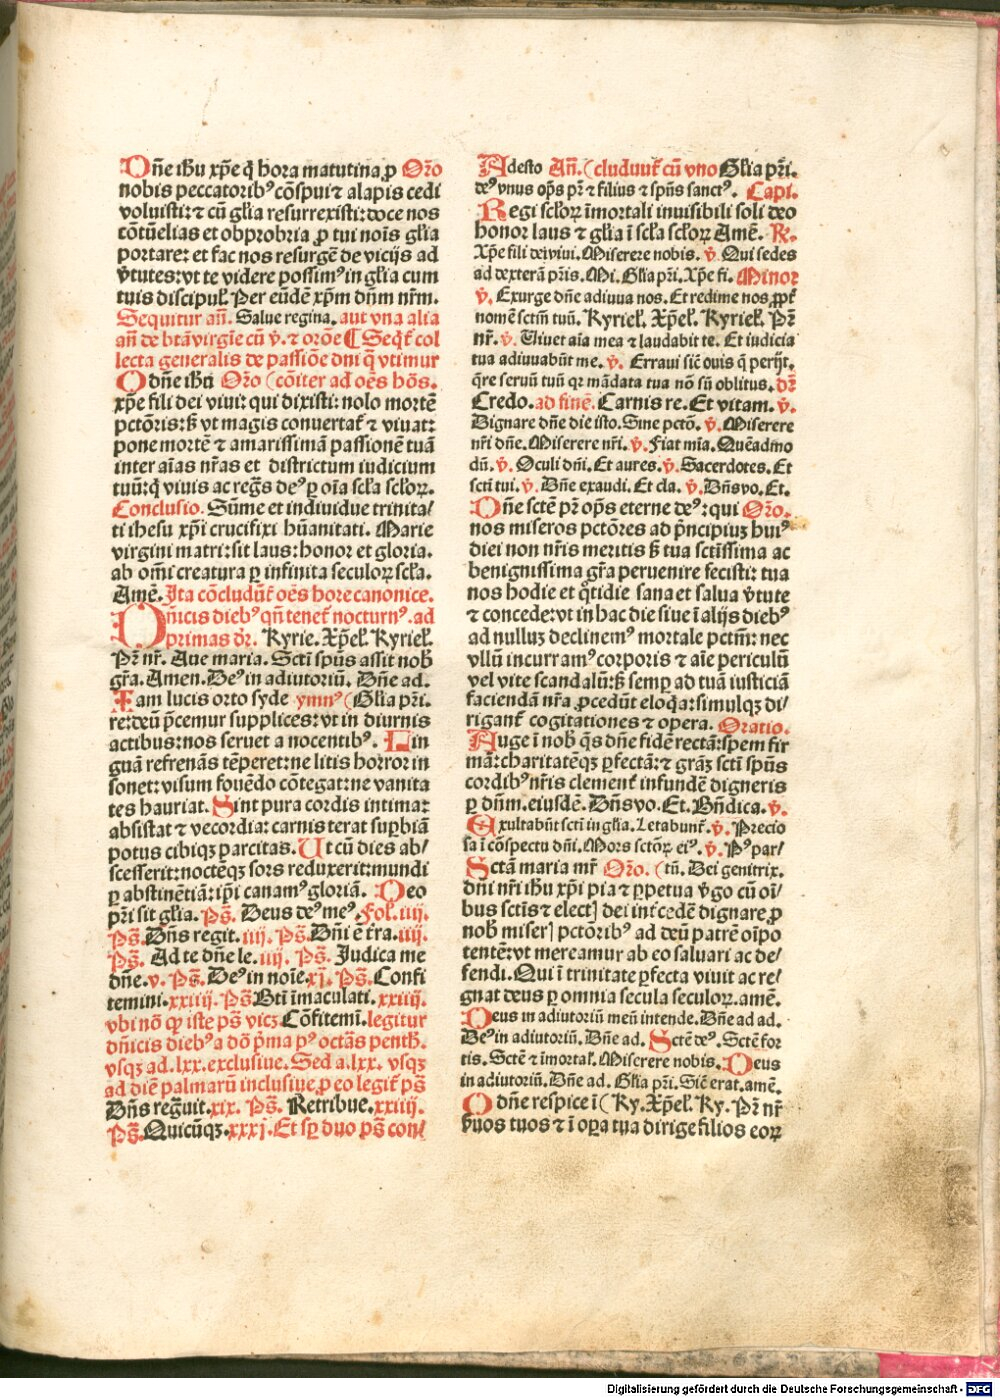 Dñe ihu xp̄e q̇ hora matutina ꝓ Orõ
nobis peccatoribꝰ cõspui ⁊ alapis cedi
voluisti: ⁊ cũ gl̃ia resurrexisti: doce nos
cõtũelias et obprobria ꝓ tui noĩs gl̃ia
portare: et fac nos resurgẽ de vicijs ad
v̾tutes: vt te videre possimꝰ in gl̃ia cum
tuis discipul̃. Per eũdẽ xp̃m dñm nr̃m.
Sequitur añ. Salue regina. aut vna alia
añ de btã virgĩe cũ v̾. ⁊ orõe ¶ Seq̃t̃ col
lecta generalis de passiõe dni q̃ vtimur
O dñe ihũ Orõ (cõiter ad oẽs hõs.
xp̃e fili dei viui: qui dixisti: nolo mortẽ
pctõris: ß vt magis conuertat̃ ⁊ viuat:
pone mortẽ ⁊ amarissimã passionẽ tuã
inter aĩas nr̃as et districtum iudicium
tuũ: q̇ viuis ac reg̃s deꝰ ꝑ oĩa scl̃a scl̃oꝝ.
Conclusio. Sũme et indiuidue trinita/
ti ihesu xp̃i crucifixi hũanitati. Marie
virgini matri: sit laus: honor et gloria.
ab om̃i creatura ꝑ infinita seculoꝝ scl̃a.
Amẽ. Ita cõcludũt̃ oẽs hore canonice.
Dñicis diebꝰ qñ tenet̃ nocturnꝰ. ad
primas dr̃. Kyrie. Xp̃el̃. Kyriel̃.
Pr̃ nr̃. Aue maria. Sctĩ spũs assit nob̃
gr̃a. Amen. Deꝰ in adiutoriũ. Dñe ad.
Iam lucis orto syde ymnꝰ (Gl̃ia pr̃i.
re: deũ p̃cemur supplices: vt in diurnis
actibus: nos seruet a nocentibꝰ. Lin
guã refrenãs tẽperet: ne litis horror in
sonet: visum fouẽdo cõtegat: ne vanita
tes hauriat. Sint pura cordis intima:
absistat ⁊ vecordia: carnis terat suꝑbiã
potus cibiqꝫ parcitas. Ut cũ dies ab/
scesserit: noctẽqꝫ sors reduxerit: mundi
ꝑ abstinẽtiã: ip̃i canamꝰ gloriã. Deo
pr̃i sit gl̃ia. Ps̃. Deus deꝰ meꝰ. Fol. iiij.
Ps̃. Dñs regit. iiij. Ps̃. Dñi ẽ t̃ra. iiij.
Ps̃. Ad te dñe le. iiij. Ps̃. Judica me
dñe. v. Ps̃. Deꝰ in noĩe. xj. Ps̃. Confi
temini. xxiiij. Ps̃. Btĩ ĩmaculati. xxiiij.
vbi nõ qꝫ iste ps̃ vicꝫ Cõfitemĩ. legitur
dñicis diebꝰ a dõ p̃ma pꝰ octãs penth̃.
vsqꝫ ad. lxx. exclusiue. Sed a. lxx. vsqꝫ
ad diẽ palmarũ inclusiue. ꝓ eo legit̃ ps̃
Dñs reg̃uit. xix. Ps̃. Retribue. xxiiij.
Ps̃. Quicũqꝫ. xxxj. Et sꝑ duo ps̃ con/
Adesto Añ. (cludũtur̃ cũ vno Gl̃ia pr̃i.
deꝰ vnus op̃s pr̃ ⁊ filius ⁊ spũs sanctꝰ. Capi.
Regi scl̃oꝝ ĩmortali inuisibili soli deo
honor laus ⁊ gl̃ia ĩ scl̃a scl̃oꝝ Amẽ. ℟.
Xp̃e fili dei viui. Miserere nobis. v̾. Qui sedes
ad dexterã pr̃is. Mi. Gl̃ia pr̃i. Xp̃e fi. Minor
v̾. Exurge dñe adiuua nos. Et redime nos ꝓpt̃
nomẽ sctm̃ tuũ. Kyriel̃. Xp̃el̃. Kyriel̃. Pr̃
nr̃. v̾. Uiuet aĩa mea ⁊ laudabit te. Et iudicia
tua adiuuabũt me. v̾. Erraui sic̃ ouis q̃ perijt.
q̃re seruũ tuũ qꝛ mãdata tua nõ sũ oblitus. dr̃
Credo. ad finẽ. Carnis re. Et vitam. v̾.
Dignare dñe die isto. Sine pctõ. v̾. Miserere
nr̃i dñe. Miserere nr̃i. v̾. Fiat mĩa. Quẽadmo
dũ. v̾. Oculi dñi. Et aures. v̾. Sacerdotes. Et
sctĩ tui. v̾. Dñe exaudi. Et cla. v̾. Dñs vo. Et.
Dñe sctẽ pr̃ op̃s eterne deꝰ: qui Orõ.
nos miseros pctõres ad p̃ncipiuꝫ huiꝰ
diei non nr̃is meritis ß tua sctĩssima ac
benignissima gr̃a peruenire fecisti: tua
nos hodie et q̊tidie sana et salua v̾tute
⁊ concede: vt in hac die siue ĩ alijs diebꝰ
ad nulluꝫ declinemꝰ mortale pctm̃: nec
vllũ incurramꝰ corporis ⁊ aĩe periculũ
vel vite scandalũ: ß semꝑ ad tuã iusticiã
faciendã nr̃a ꝓcedũt eloq̃a: simulqꝫ di/
rigant̃ cogitationes ⁊ opera. Oratio.
Auge ĩ nob̃ q̃s dñe fidẽ rectã: spem fir
mã: charitatẽqꝫ ꝑfectã: ⁊ grãꝫ sctĩ spũs
cordibꝰ nr̃is clement̃ infundẽ digneris
ꝑ dñm. eiusdẽ. Dñs vo. Et. Bñdica. v̾.
Exultabũt sctĩ in gl̃ia. Letabunt̃. v̾. Precio
sa ĩ cõspectu dñi. Mors sctõꝝ eiꝰ. v̾. Pꝰ par/
Sctã maria mr̃ Orõ. (tũ. Dei genitrix.
dñi nr̃i ihu xp̃i pia ⁊ ꝑpetua v̾go cũ oĩ/
bus sctĩs ⁊ elect] dei int̃cedẽ dignare ꝓ
nob̃ miser] pctõribꝰ ad deũ patrẽ oĩpo
tentẽ: vt mereamur ab eo saluari ac de/
fendi. Qui ĩ trinitate ꝑfecta viuit ac re/
gnat deus ꝑ omnia secula seculoꝝ. amẽ.
Deus in adiutoriũ meũ intende. Dñe ad ad.
Deꝰ in adiutoriũ. Dñe ad. Sctẽ deꝰ. Sctẽ for
tis. Sctẽ ⁊ ĩmortal̃. Miserere nobis. Deus
in adiutoriũ. Dñe ad. Gl̃ia pr̃i. Sic̃ erat. amẽ.
O dñe respice ĩ (Ky. Xp̃el̃. Ky. Pr̃ nr̃
ẜuos tuos ⁊ ĩ oꝑa tua dirige filios eoꝝ
Digitalisierung gefördert durch die Deutsche Forschungsgemeinschaft - DFG